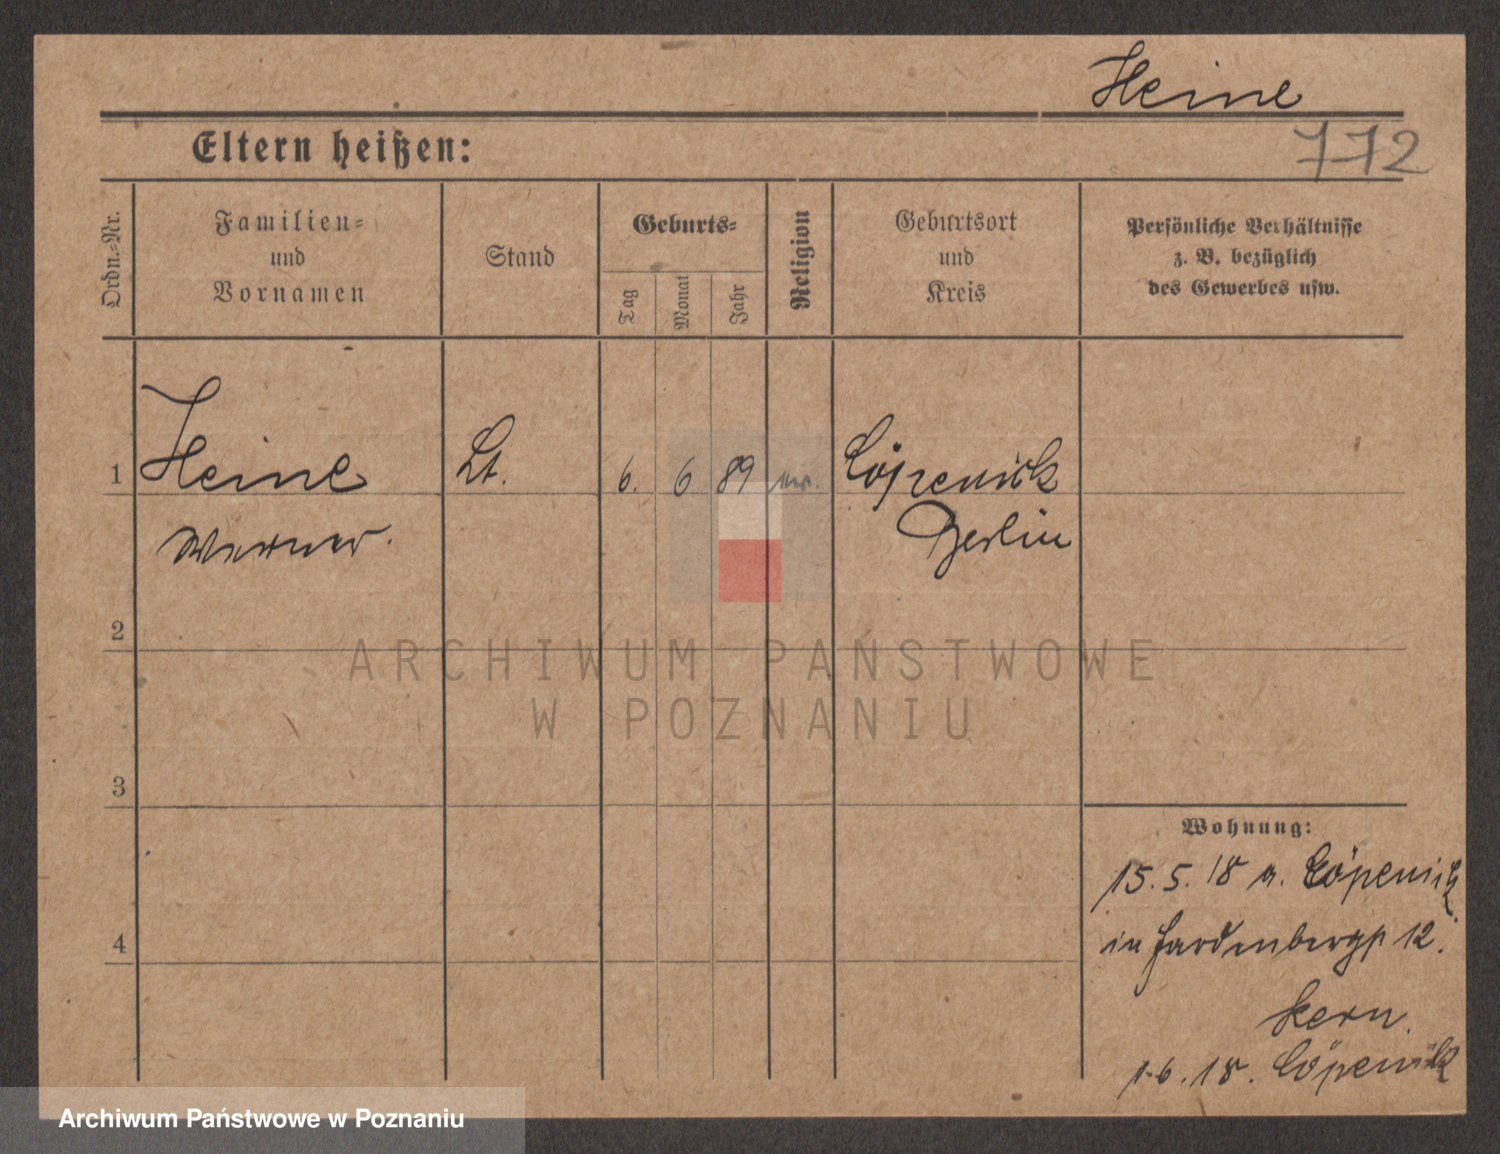 Heine
Eltern heißen:
772
Ordn.-Nr.
Familien-
und
Vornamen
Stand
Geburts-
Tag
Monat
Jahr
Religion
Geburtsort
und
Kreis
Persönliche Verhältnisse
z. B. bezüglich
des Gewerbes usw.
1
Heine
Lt.
6. 6 89
Cöpenick
Werner.
Berlin
2
ARCHIWUM PAŃSTWOWE
W POZNANIU
3
Wohnung:
15.5.18 a. Cöpenick
4
in 12.
Kern.
1.6.18. Cöpenick
Archiwum Państwowe w Poznaniu